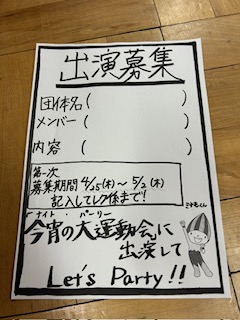 出演募集
団体名(　　　　　)
メンバー(　　　　　)
内容(　　　　　)
第一次
募集期間 4/25(木)～5/2(木)
記入してレク係まで!
ナイト・パーリー
今宵の大運動会に
出演して
Let's Party!!